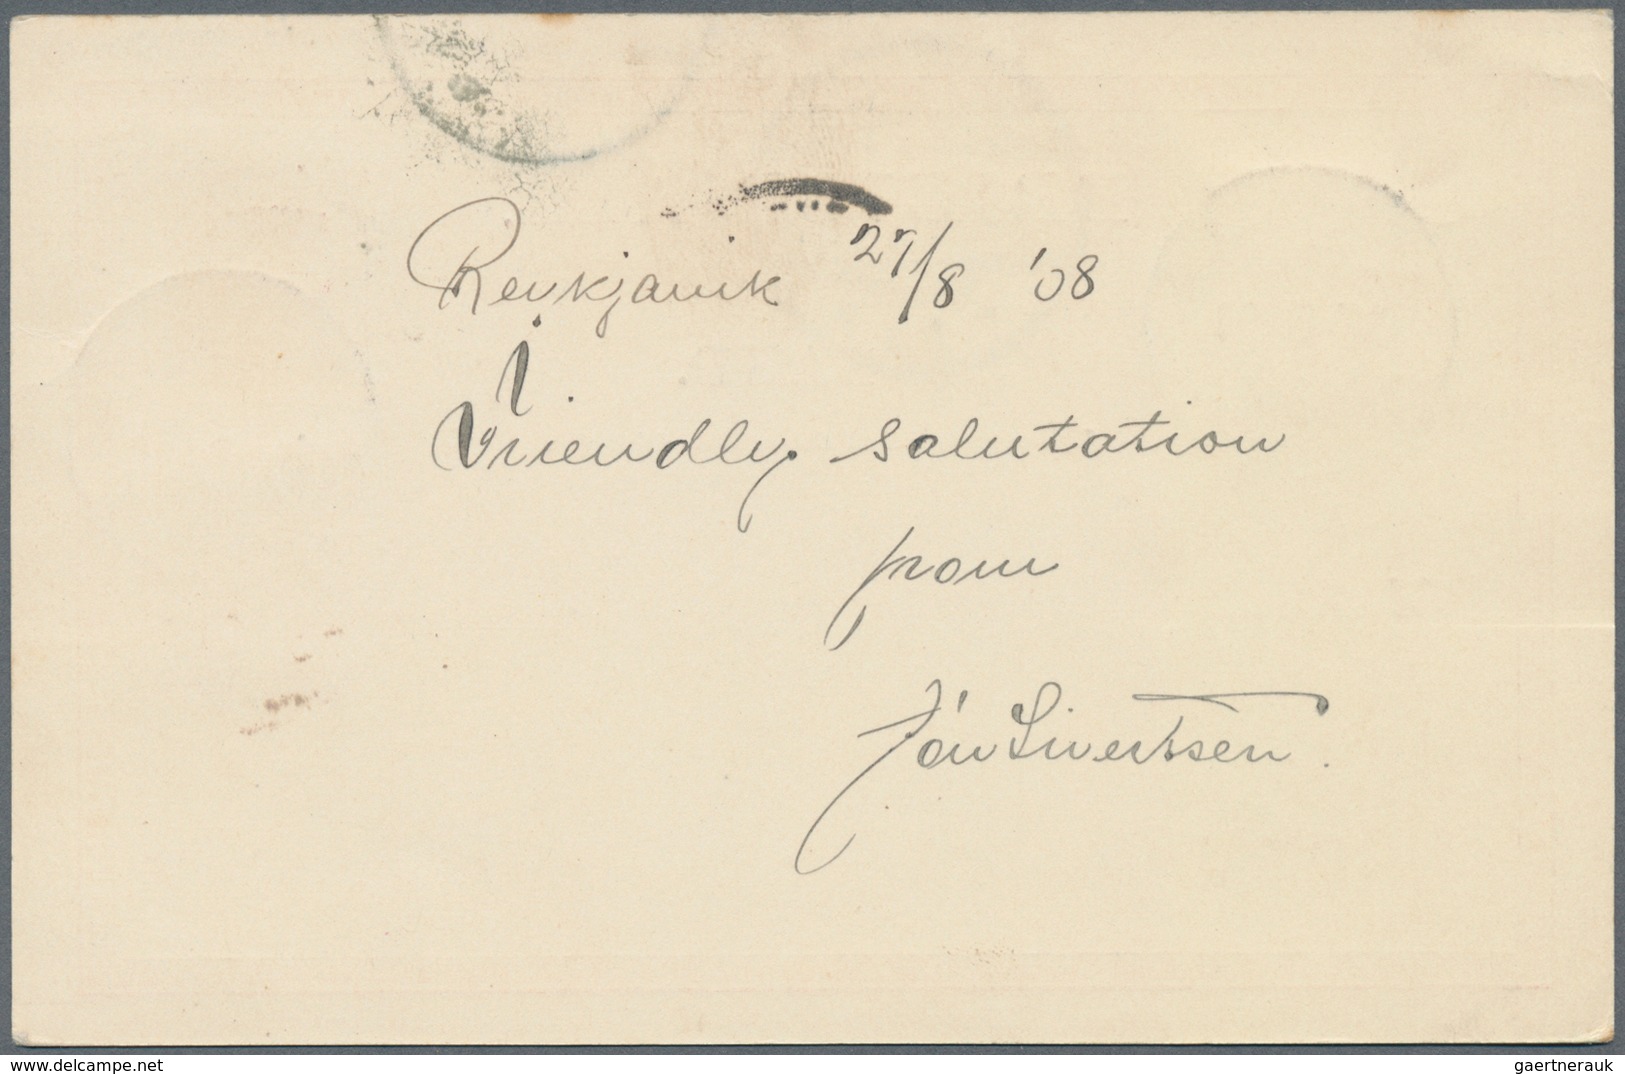 Reykjavik 27/8 '08
Friendly salutation
from
Jón Sivertsen.
www.delcampe.net
gaertnerauk